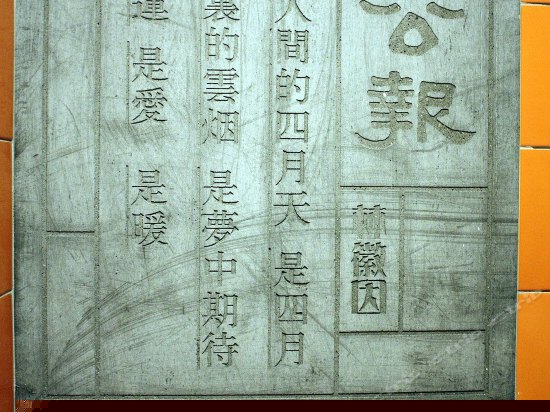 公報
林徽因
人間的四月天 是四月
裏的雲烟 是夢中期待
蓮 是愛 是暖